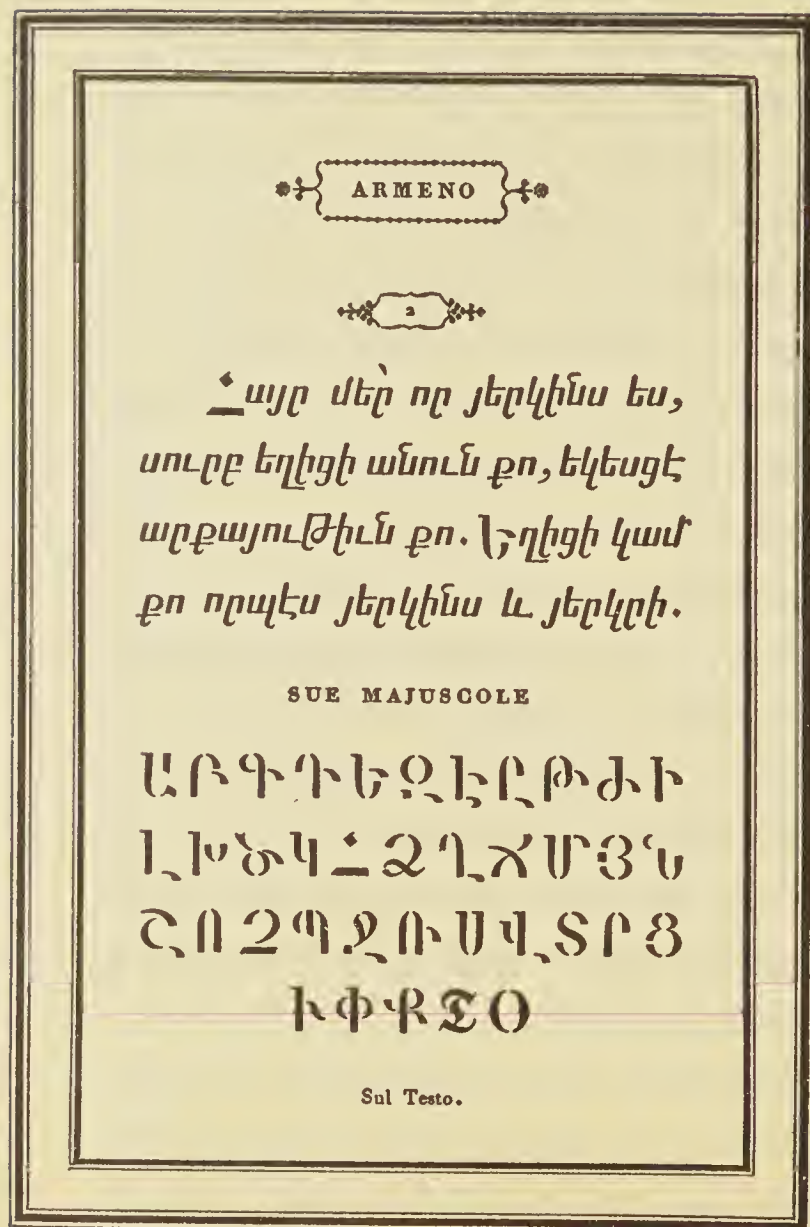 ARMENO
2
Հայր մեր՝ որ յերկինս ես,
սուրբ եղիցի անուն քո, եկեսցէ
արքայութիւն քո. Եղիցի կամք
քո որպէս յերկինս և յերկրի.
SUE MAJUSCOLE
ԱԲԳԴԵԶԷԸԹԺԻ
ԼԽԾԿՀՁՂՃՄՅՆ
ՇՈՉՊՋՌՍՎՏՐՑ
ՒՓՔՖՕ
Sul Testo.